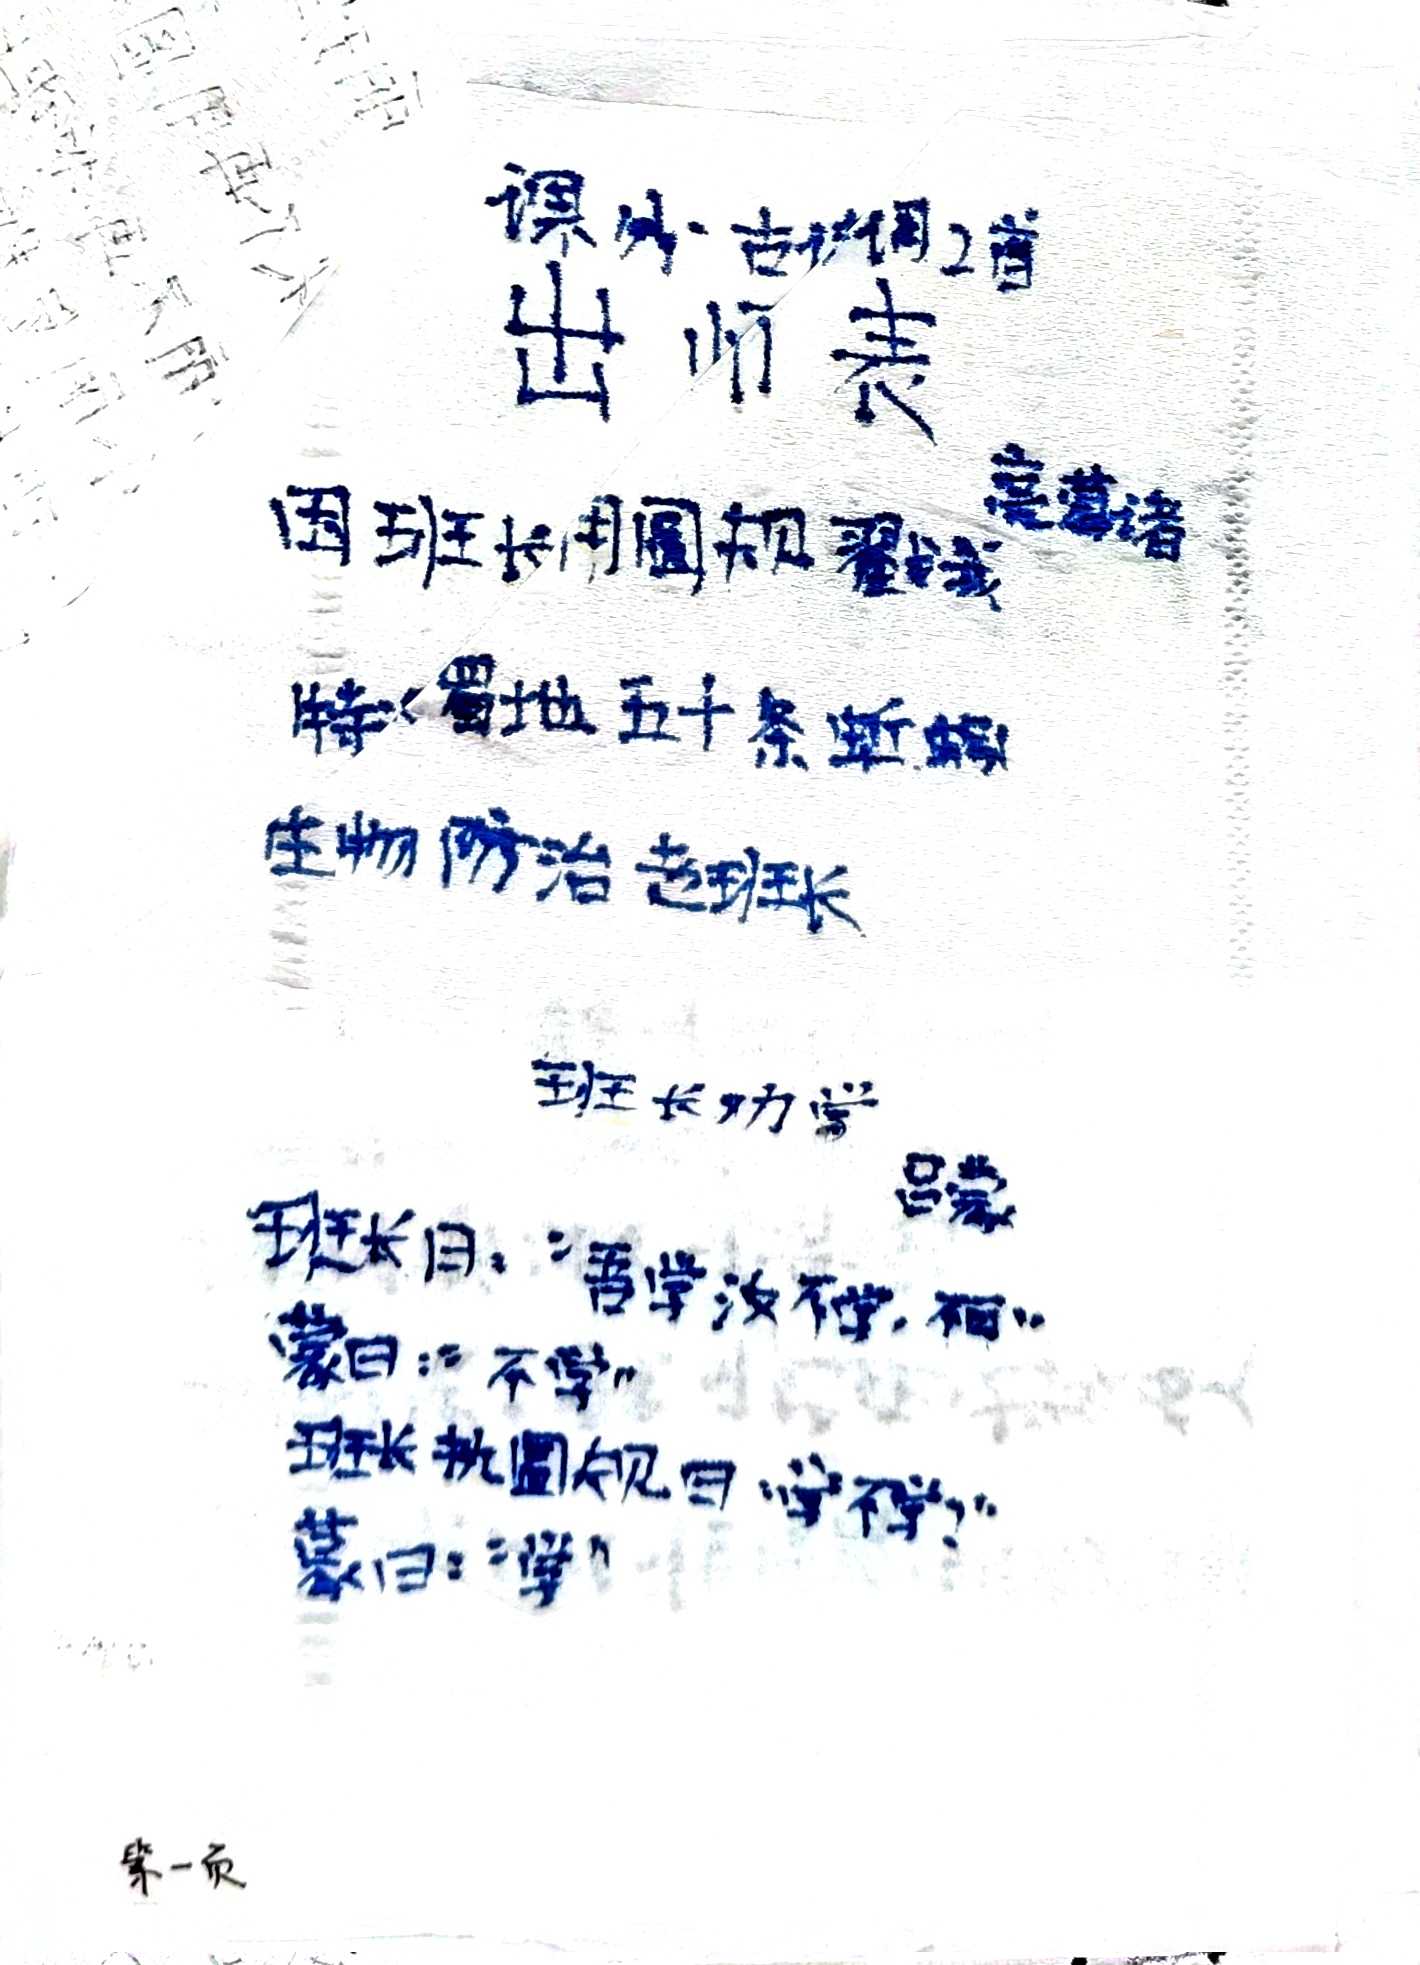 课外·古诗词2首
出师表
亮葛诸
因班长用圆规翟我
特 蜀地五十条蚯蚓
生物防治 班长
班长劝学
吕蒙
班长曰:“吾学汝不学,
蒙曰:“不学”
班长执圆规曰“学不学?”
蒙曰:“学”
第一页